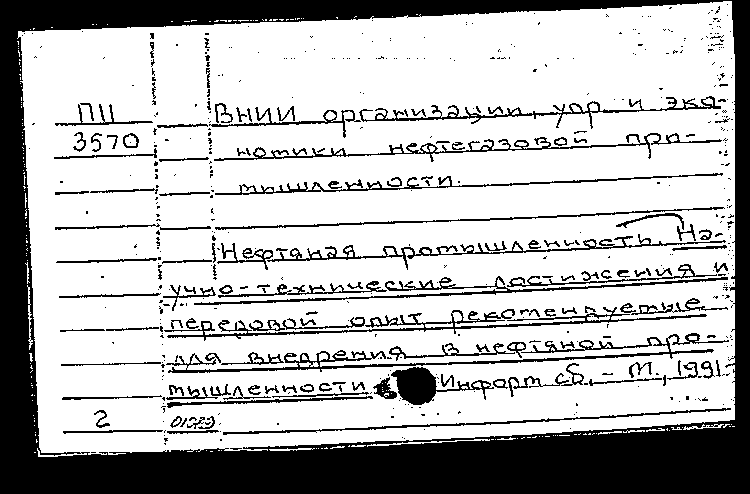 ПШ
3570
ВНИИ организации, упр. и эко-
номики нефтегазовой про-
мышленности.
Нефтяная промышленность. На-
учно-технические достижения и
передовой опыт, рекомендуемые
для внедрения в нефтяной про-
мышленности Информ сб. - М., 1991-
2